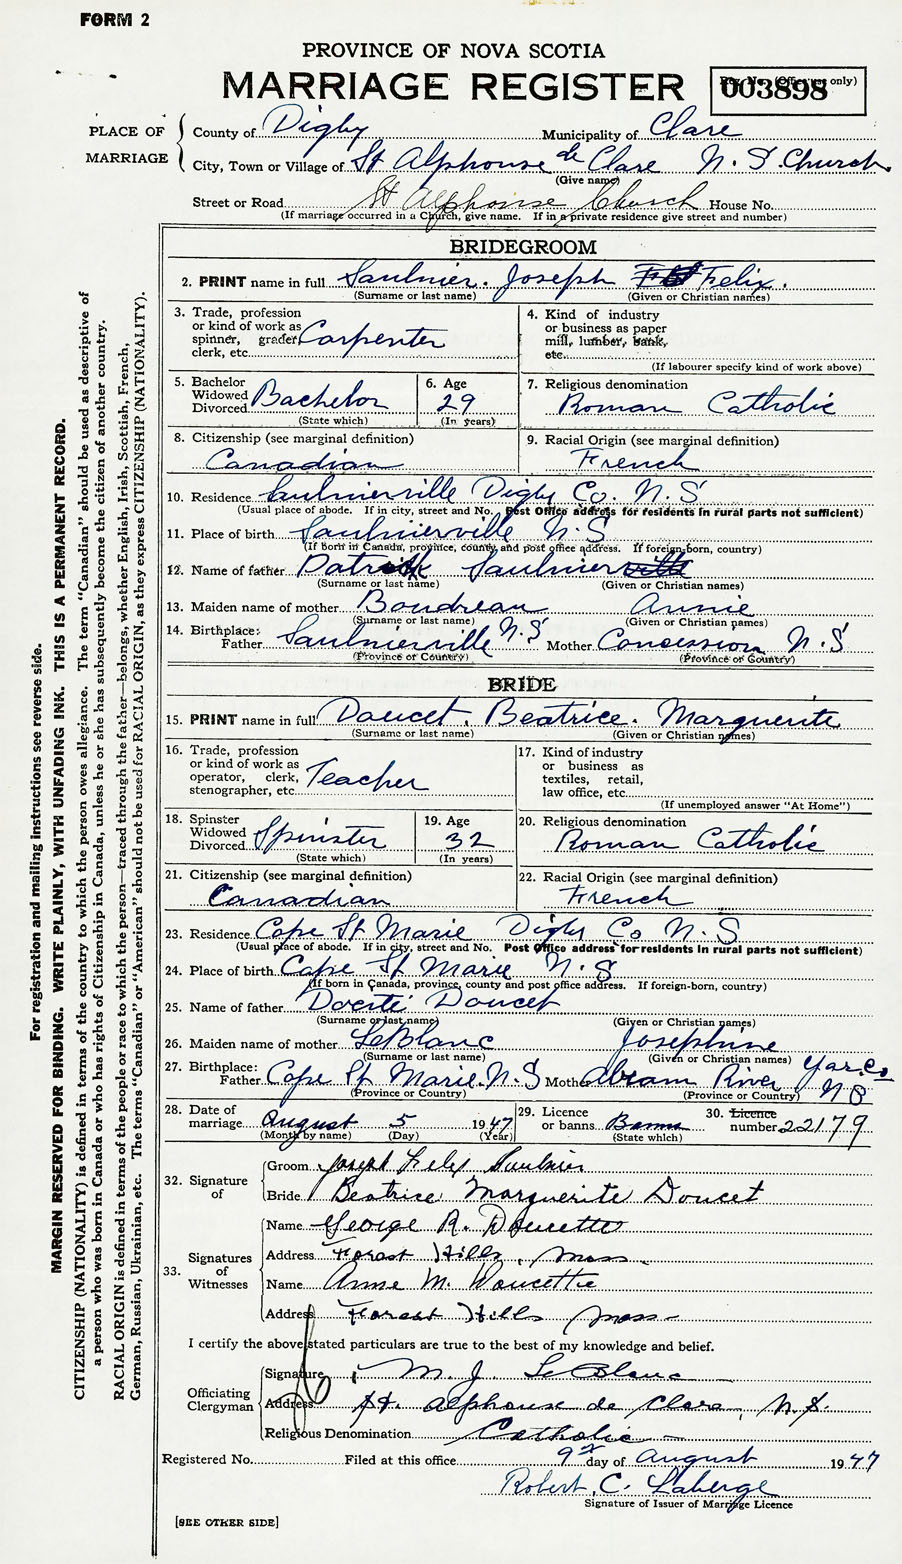 FORM 2
PROVINCE OF NOVA SCOTIA
MARRIAGE REGISTER
Reg. No. (Office use only)
003898
PLACE OF MARRIAGE
County of Digby Municipality of Clare
City, Town or Village of St Alphonse de Clare N.S. Church
(Give name)
Street or Road St Alphonse Church House No.
(If marriage occurred in a Church, give name. If in a private residence give street and number)
BRIDEGROOM
2. PRINT name in full Saulnier. Joseph Felix.
(Surname or last name) (Given or Christian names)
3. Trade, profession or kind of work as spinner, grader, clerk, etc. Carpenter
4. Kind of industry or business as paper mill, lumber, bank, etc.
(If labourer specify kind of work above)
5. Bachelor Widowed Divorced Bachelor
(State which)
6. Age 29
(In years)
7. Religious denomination
Roman Catholic
8. Citizenship (see marginal definition)
Canadian
9. Racial Origin (see marginal definition)
French
10. Residence Saulnierville Digby Co. N.S
(Usual place of abode. If in city, street and No. Post Office address for residents in rural parts not sufficient)
11. Place of birth Saulnierville N.S
(If born in Canada, province, county and post office address. If foreign-born, country)
12. Name of father Patrick Saulnier
(Surname or last name) (Given or Christian names)
13. Maiden name of mother Boudreau Annie
(Surname or last name) (Given or Christian names)
14. Birthplace: Father Saulnierville N.S Mother Concession N.S
(Province or Country) (Province or Country)
BRIDE
15. PRINT name in full Doucet, Beatrice. Marguerite
(Surname or last name) (Given or Christian names)
16. Trade, profession or kind of work as operator, clerk, stenographer, etc. Teacher
17. Kind of industry or business as textiles, retail, law office, etc.
(If unemployed answer "At Home")
18. Spinster Widowed Divorced Spinster
(State which)
19. Age 32
(In years)
20. Religious denomination
Roman Catholic
21. Citizenship (see marginal definition)
Canadian
22. Racial Origin (see marginal definition)
French
23. Residence Cape St Marie Digby Co N.S
(Usual place of abode. If in city, street and No. Post Office address for residents in rural parts not sufficient)
24. Place of birth Cape St Marie N.S
(If born in Canada, province, county and post office address. If foreign-born, country)
25. Name of father Doucet
(Surname or last name) (Given or Christian names)
26. Maiden name of mother LeBlanc Josephine
(Surname or last name) (Given or Christian names)
27. Birthplace: Father Cape St Marie N.S Mother Abram River Yar. Co. N S
(Province or Country) (Province or Country)
28. Date of marriage August 5 1947
(Month by name) (Day) (Year)
29. Licence or banns Banns
(State which)
30. Licence number 22179
32. Signature of
Groom Joseph Felix Saulnier
Bride Beatrice Marguerite Doucet
33. Signatures of Witnesses
Name George R. Doucette
Address Forest Hills, Mass.
Name Anne M. Doucette
Address Forest Hills Mass.
I certify the above stated particulars are true to the best of my knowledge and belief.
Officiating Clergyman
Signature M. J. LeBlanc
Address St. Alphonse de Clare, N.S.
Religious Denomination Catholic
Registered No. Filed at this office 9 day of August 1947
Robert C. Laberge
Signature of Issuer of Marriage Licence
[SEE OTHER SIDE]
For registration and mailing instructions see reverse side.
MARGIN RESERVED FOR BINDING. WRITE PLAINLY, WITH UNFADING INK. THIS IS A PERMANENT RECORD.
CITIZENSHIP (NATIONALITY) is defined in terms of the country to which the person owes allegiance. The term "Canadian" should be used as descriptive of
a person who was born in Canada or who has rights of Citizenship in Canada, unless he or she has subsequently become the citizen of another country.
RACIAL ORIGIN is defined in terms of the people or race to which the person—traced through the father—belongs, whether English, Irish, Scottish, French,
German, Russian, Ukrainian, etc. The terms "Canadian" or "American" should not be used for RACIAL ORIGIN, as they express CITIZENSHIP (NATIONALITY).